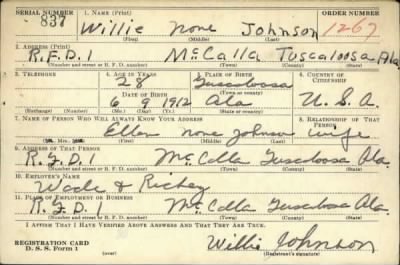 SERIAL NUMBER 1. NAME (Print) ORDER NUMBER
837 Willie None Johnson 1267
(First) (Middle) (Last)
2. ADDRESS (Print)
R.F.D. 1 McCalla Tuscaloosa Ala
(Number and street or R. F. D. number) (Town) (County) (State)
3. TELEPHONE 4. AGE IN YEARS 5. PLACE OF BIRTH 6. COUNTRY OF CITIZENSHIP
28 Tuscaloosa
(Town or county)
DATE OF BIRTH
6 9 1912 Ala U.S.A.
(Exchange) (Number) (Mo.) (Day) (Yr.) (State or country)
7. NAME OF PERSON WHO WILL ALWAYS KNOW YOUR ADDRESS 8. RELATIONSHIP OF THAT PERSON
Ellen None Johnson wife
(First) (Middle) (Last)
9. ADDRESS OF THAT PERSON
R.F.D. 1 McCalla Tuscaloosa Ala.
(Number and street or R. F. D. number) (Town) (County) (State)
10. EMPLOYER'S NAME
Wade & Richey
11. PLACE OF EMPLOYMENT OR BUSINESS
R.F.D. 1 McCalla Tuscaloosa Ala.
(Number and street or R. F. D. number) (Town) (County) (State)
I AFFIRM THAT I HAVE VERIFIED ABOVE ANSWERS AND THAT THEY ARE TRUE.
REGISTRATION CARD
D. S. S. Form 1 Willie Johnson
(over) (Registrant's signature)